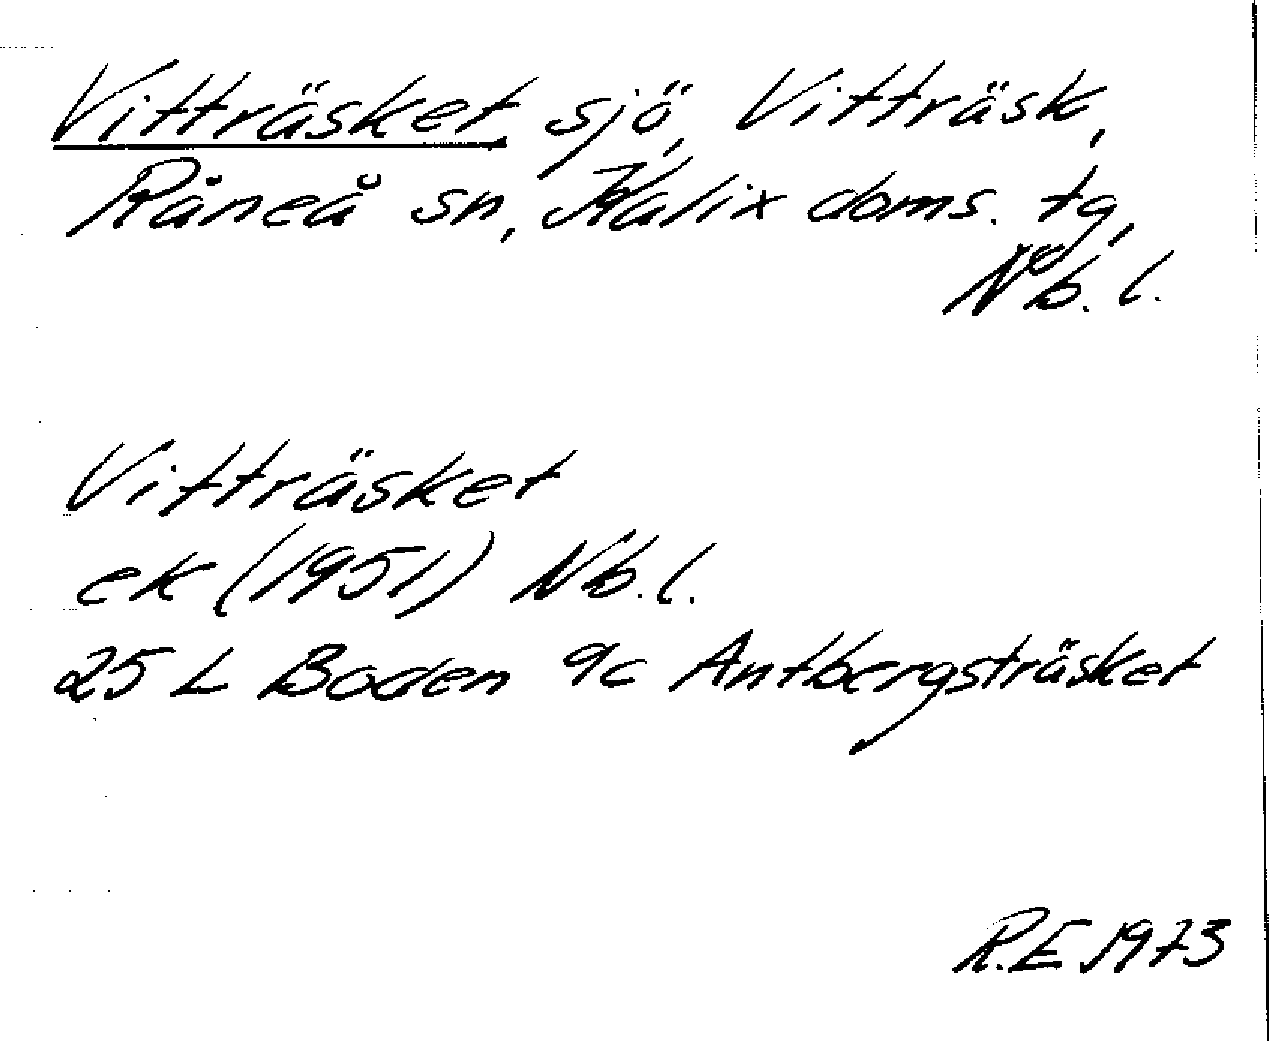 Vitträsket, sjö, Vitträsk,
Råneå sn, Kalix doms. tg,
Nb. l.
Vitträsket
ek (1951) Nb. l.
25 L Boden 9c Antbergsträsket
R.E 1973